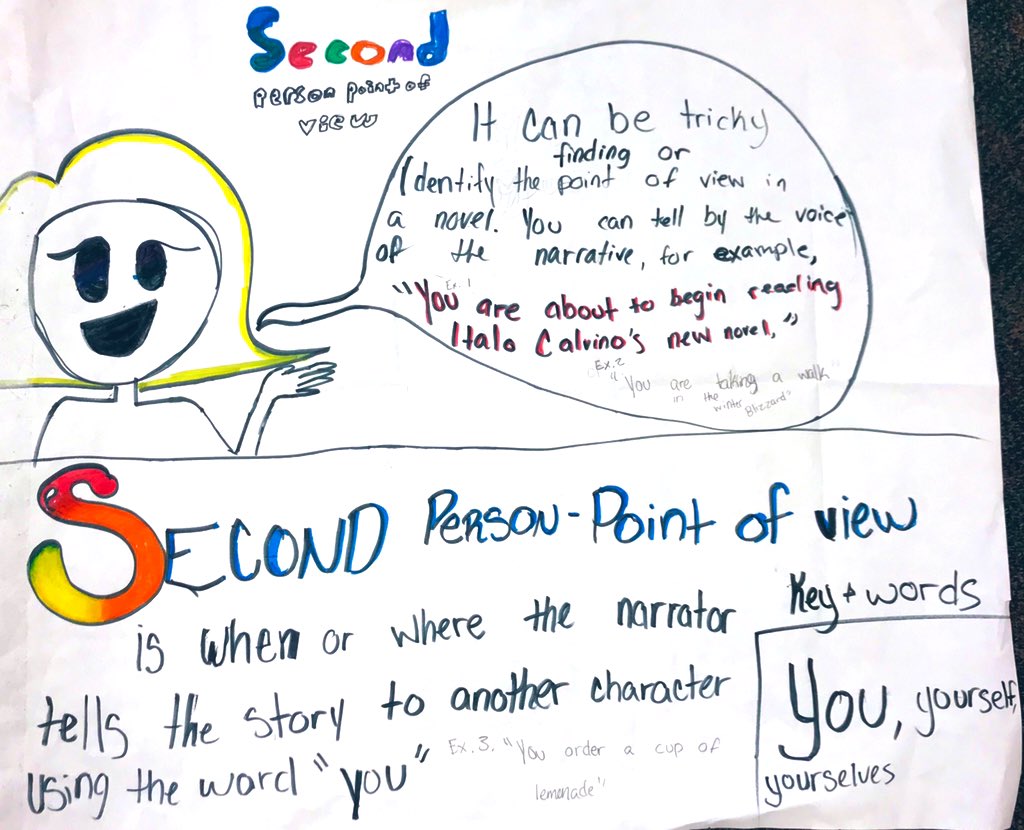 Second
Person point of
view
It can be tricky
finding or
Identify the point of view in
a novel. You can tell by the voice
of the narrative, for example,
Ex. 1
"You are about to begin reading
Italo Calvino's new novel,"
Ex. 2
"You are taking a walk"
in the winter Blizzard"
SECOND PERSON-Point of view
is when or where the narrator
tells the story to another character
using the word "you"
Ex. 3. "You order a cup of
lemonade"
Key + words
You, yourself,
yourselves